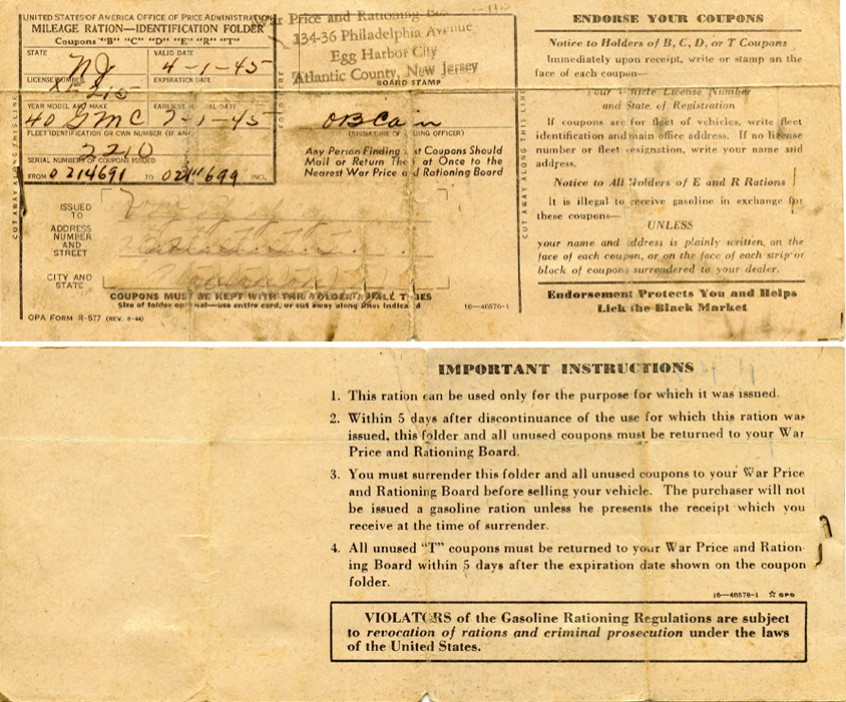 UNITED STATES OF AMERICA OFFICE OF PRICE ADMINISTRATION
MILEAGE RATION—IDENTIFICATION FOLDER
Coupons "B" "C" "D" "E" "R" "T"
STATE
NJ
VALID DATE
4-1-45
LICENSE NUMBER
EXPIRATION DATE
YEAR MODEL AND MAKE
40 GMC
7-1-45
FLEET IDENTIFICATION OR OWN NUMBER (IF ANY)
2210
SERIAL NUMBERS OF COUPONS ISSUED
FROM 0214691 TO 0214699 INCL.
CUT AWAY ALONG THIS LINE
FOLD HERE
War Price and Rationing
134-36 Philadelphia Avenue
Egg Harbor City
Atlantic County, New Jersey
BOARD STAMP
(SIGNATURE OF ISSUING OFFICER)
Any Person Finding Lost Coupons Should
Mail or Return Them at Once to the
Nearest War Price and Rationing Board
ISSUED
TO
ADDRESS
NUMBER
AND
STREET
CITY AND
STATE
COUPONS MUST BE KEPT WITH THIS FOLDER
Size of folder optional—use entire card, or cut away along lines indicated
OPA FORM R-577 (REV. 8-44)
16—46576-1
CUT AWAY ALONG THIS LINE
ENDORSE YOUR COUPONS
Notice to Holders of B, C, D, or T Coupons
Immediately upon receipt, write or stamp on the
face of each coupon—
Your Vehicle License Number
and State of Registration
If coupons are for fleet of vehicles, write fleet
identification and main office address. If no license
number or fleet designation, write your name and
address.
Notice to All Holders of E and R Rations
It is illegal to receive gasoline in exchange for
these coupons—
UNLESS
your name and address is plainly written, on the
face of each coupon, or on the face of each strip or
block of coupons surrendered to your dealer.
Endorsement Protects You and Helps
Lick the Black Market
IMPORTANT INSTRUCTIONS
1. This ration can be used only for the purpose for which it was issued.
2. Within 5 days after discontinuance of the use for which this ration was
issued, this folder and all unused coupons must be returned to your War
Price and Rationing Board.
3. You must surrender this folder and all unused coupons to your War Price
and Rationing Board before selling your vehicle. The purchaser will not
be issued a gasoline ration unless he presents the receipt which you
receive at the time of surrender.
4. All unused "T" coupons must be returned to your War Price and Ration-
ing Board within 5 days after the expiration date shown on the coupon
folder.
16—46576-1 ☆ GPO
VIOLATORS of the Gasoline Rationing Regulations are subject
to revocation of rations and criminal prosecution under the laws
of the United States.